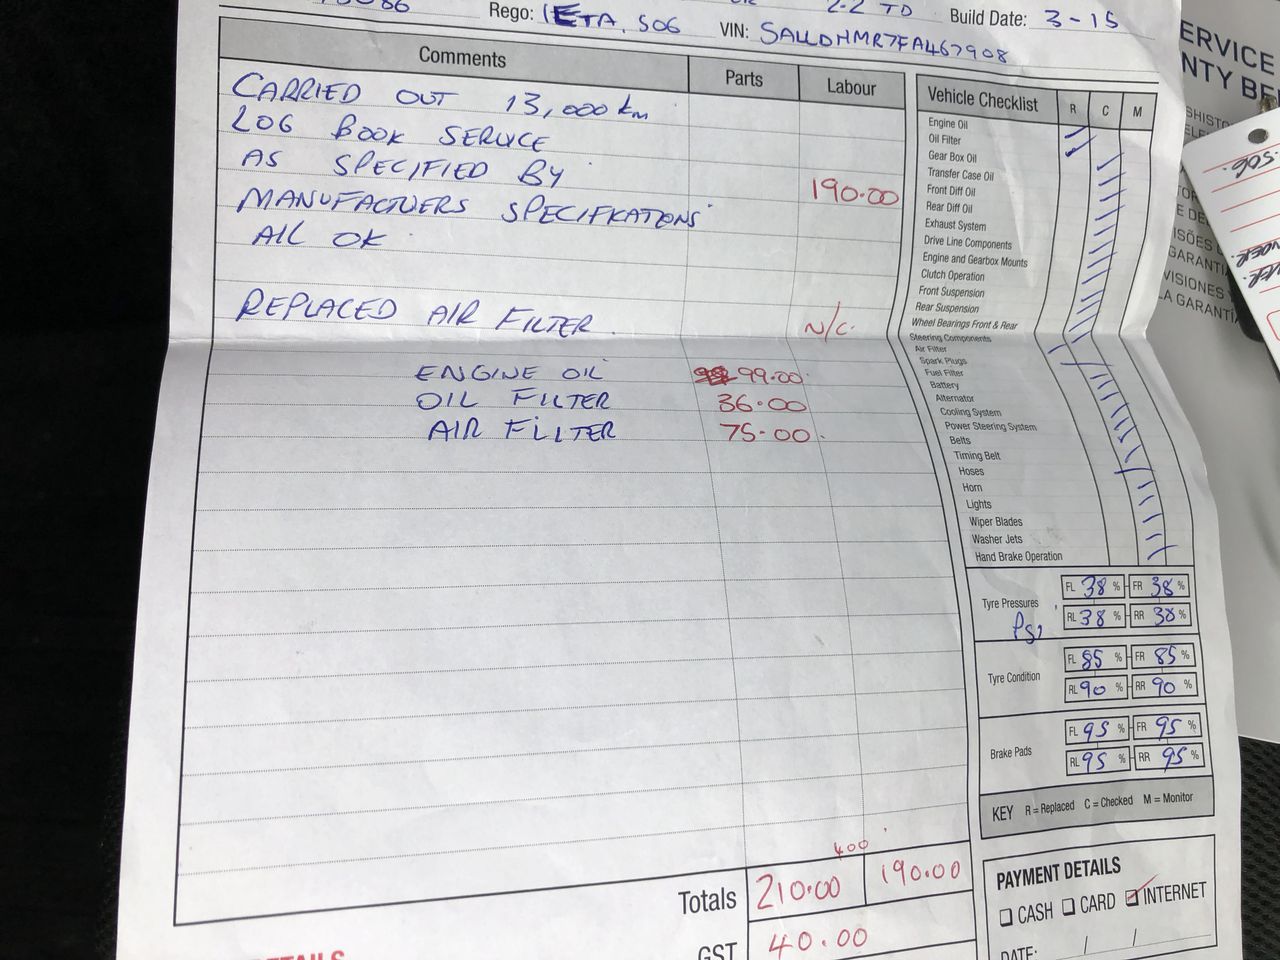 Rego: 1ETA.506 2.2 TD Build Date: 3-15
VIN: SALLDHMR7FA467908
Comments Parts Labour
CARRIED OUT 13,000 km
LOG BOOK SERVICE
AS SPECIFIED BY
190.00
MANUFACTUERS SPECIFICATIONS
ALL OK
REPLACED AIR FILTER. N/C.
ENGINE OIL 99.00
OIL FILTER 36.00
AIR FILTER 75.00
400
Totals 210.00 190.00
GST 40.00
Vehicle Checklist R C M
Engine Oil
Oil Filter
Gear Box Oil
Transfer Case Oil
Front Diff Oil
Rear Diff Oil
Exhaust System
Drive Line Components
Engine and Gearbox Mounts
Clutch Operation
Front Suspension
Rear Suspension
Wheel Bearings Front & Rear
Steering Components
Air Filter
Spark Plugs
Fuel Filter
Battery
Alternator
Cooling System
Power Steering System
Belts
Timing Belt
Hoses
Horn
Lights
Wiper Blades
Washer Jets
Hand Brake Operation
Tyre Pressures Psi
FL 38 % FR 38 %
RL 38 % RR 38 %
Tyre Condition
FL 85 % FR 85 %
RL 90 % RR 90 %
Brake Pads
FL 95 % FR 95 %
RL 95 % RR 95 %
KEY R = Replaced C = Checked M = Monitor
PAYMENT DETAILS
CASH CARD INTERNET
DATE: / /